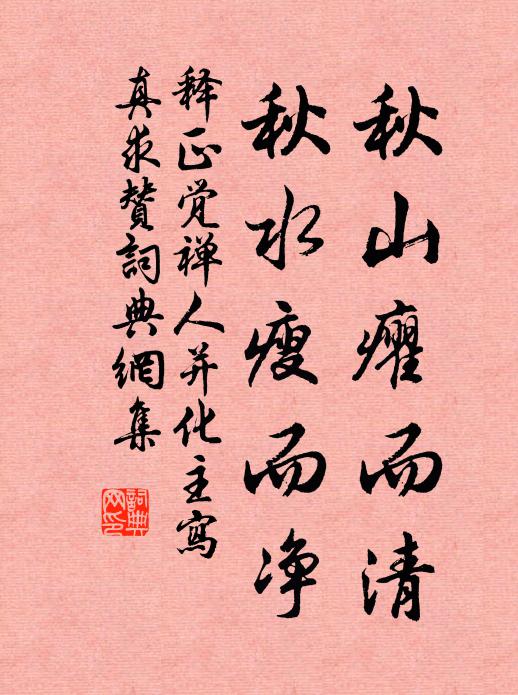 秋山癯而清
秋水瘦而净
释正觉禅人并化主寫
真求賛詞典網集
詞典网印